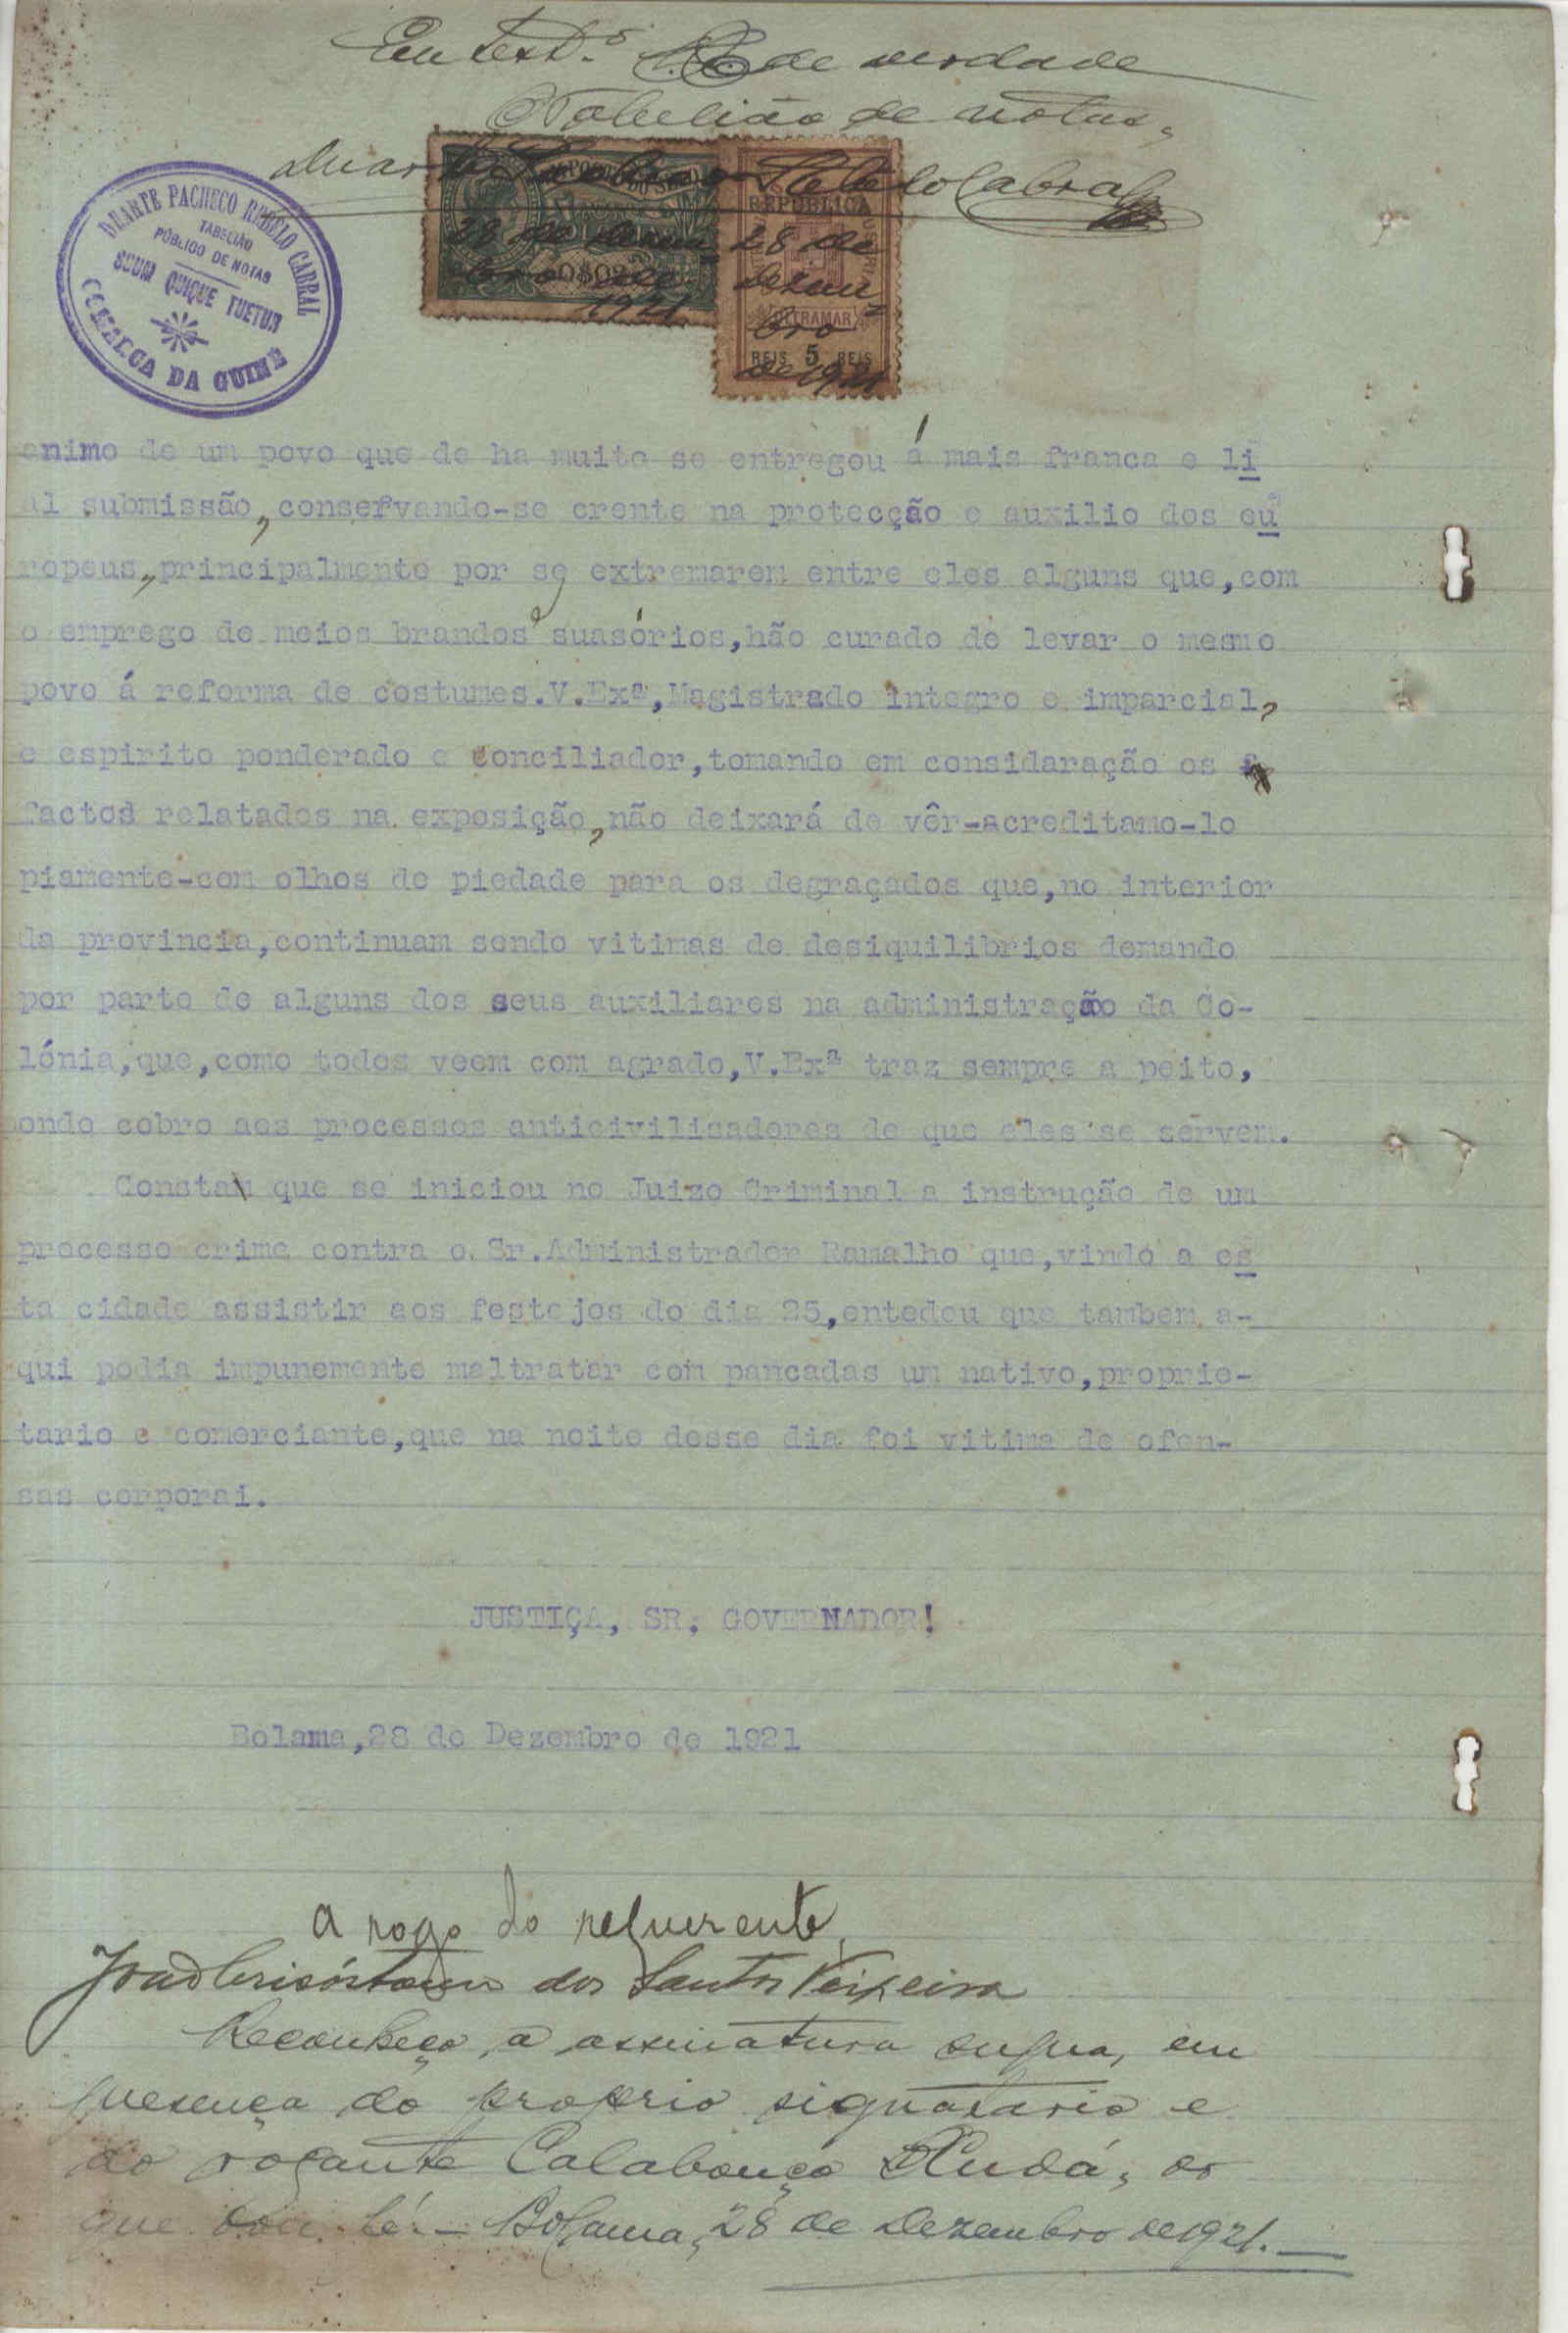 Em test.º de verdade
O Tabelião de notas,
Duarte Pacheco Rebelo Cabral
DUARTE PACHECO REBÊLO CABRAL
TABELIÃO
PÚBLICO DE NOTAS
SUUM QUIQUE TUETUR
COMARCA DA GUINÉ
IMPOSTO DO SELO
28 de Dezem
bro de
1921
REPUBLICA
28 de
Dezem
ULTRAMAR
bro
REIS 5 REIS
de 1921
animo de um povo que de ha muito se entregou á mais franca e li
al submissão, conservando-se crente na protecção e auxilio dos eu
ropeus, principalmente por se extremarem entre eles alguns que,com
o emprego de meios brandos e suasórios,hão curado de levar o mesmo
povo á reforma de costumes.V.Exª,Magistrado integro e imparcial,
e espirito ponderado e conciliador,tomando em considaração os
factos relatados na exposição, não deixará de vêr-acreditamo-lo
piamente-com olhos de piedade para os degraçados que,no interior
da provincia,continuam sendo vitimas de desiquilibrios demando
por parte de alguns dos seus auxiliares na administração da Co-
lónia,que,como todos veem com agrado,V.Exª traz sempre a peito,
ondo cobro aos processos anticivilisadores de que eles se servem.
Consta que se iniciou no Juizo Criminal a instrução de um
processo crime contra o Sr.Administrador Ramalho que,vindo a es
ta cidade assistir aos festejos do dia 25,entedeu que tambem a-
qui podia impunemente maltratar com pancadas um nativo,proprie-
tario e comerciante,que na noite desse dia foi vitima de ofen-
sas corporai.
JUSTIÇA, SR. GOVERNADOR!
Bolama,28 de Dezembro de 1921
A rogo do requerente,
João Crisóstomo dos Santos Teixeira
Reconheço a assinatura supra, em
presença do proprio signatario e
do rogante Calabouço Dudá, do
que dou fé. — Bolama, 28 de Dezembro de 1921.